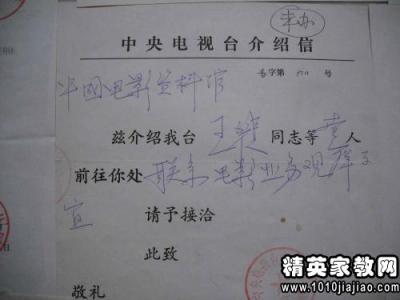 未办
中央电视台介绍信
字第 号
中国电影资料馆
兹介绍我台 同志等壹人
前往你处联系电影业务观摩事
宜 请予接洽
此致
敬礼
精英家教网
www.1010jiajiao.com